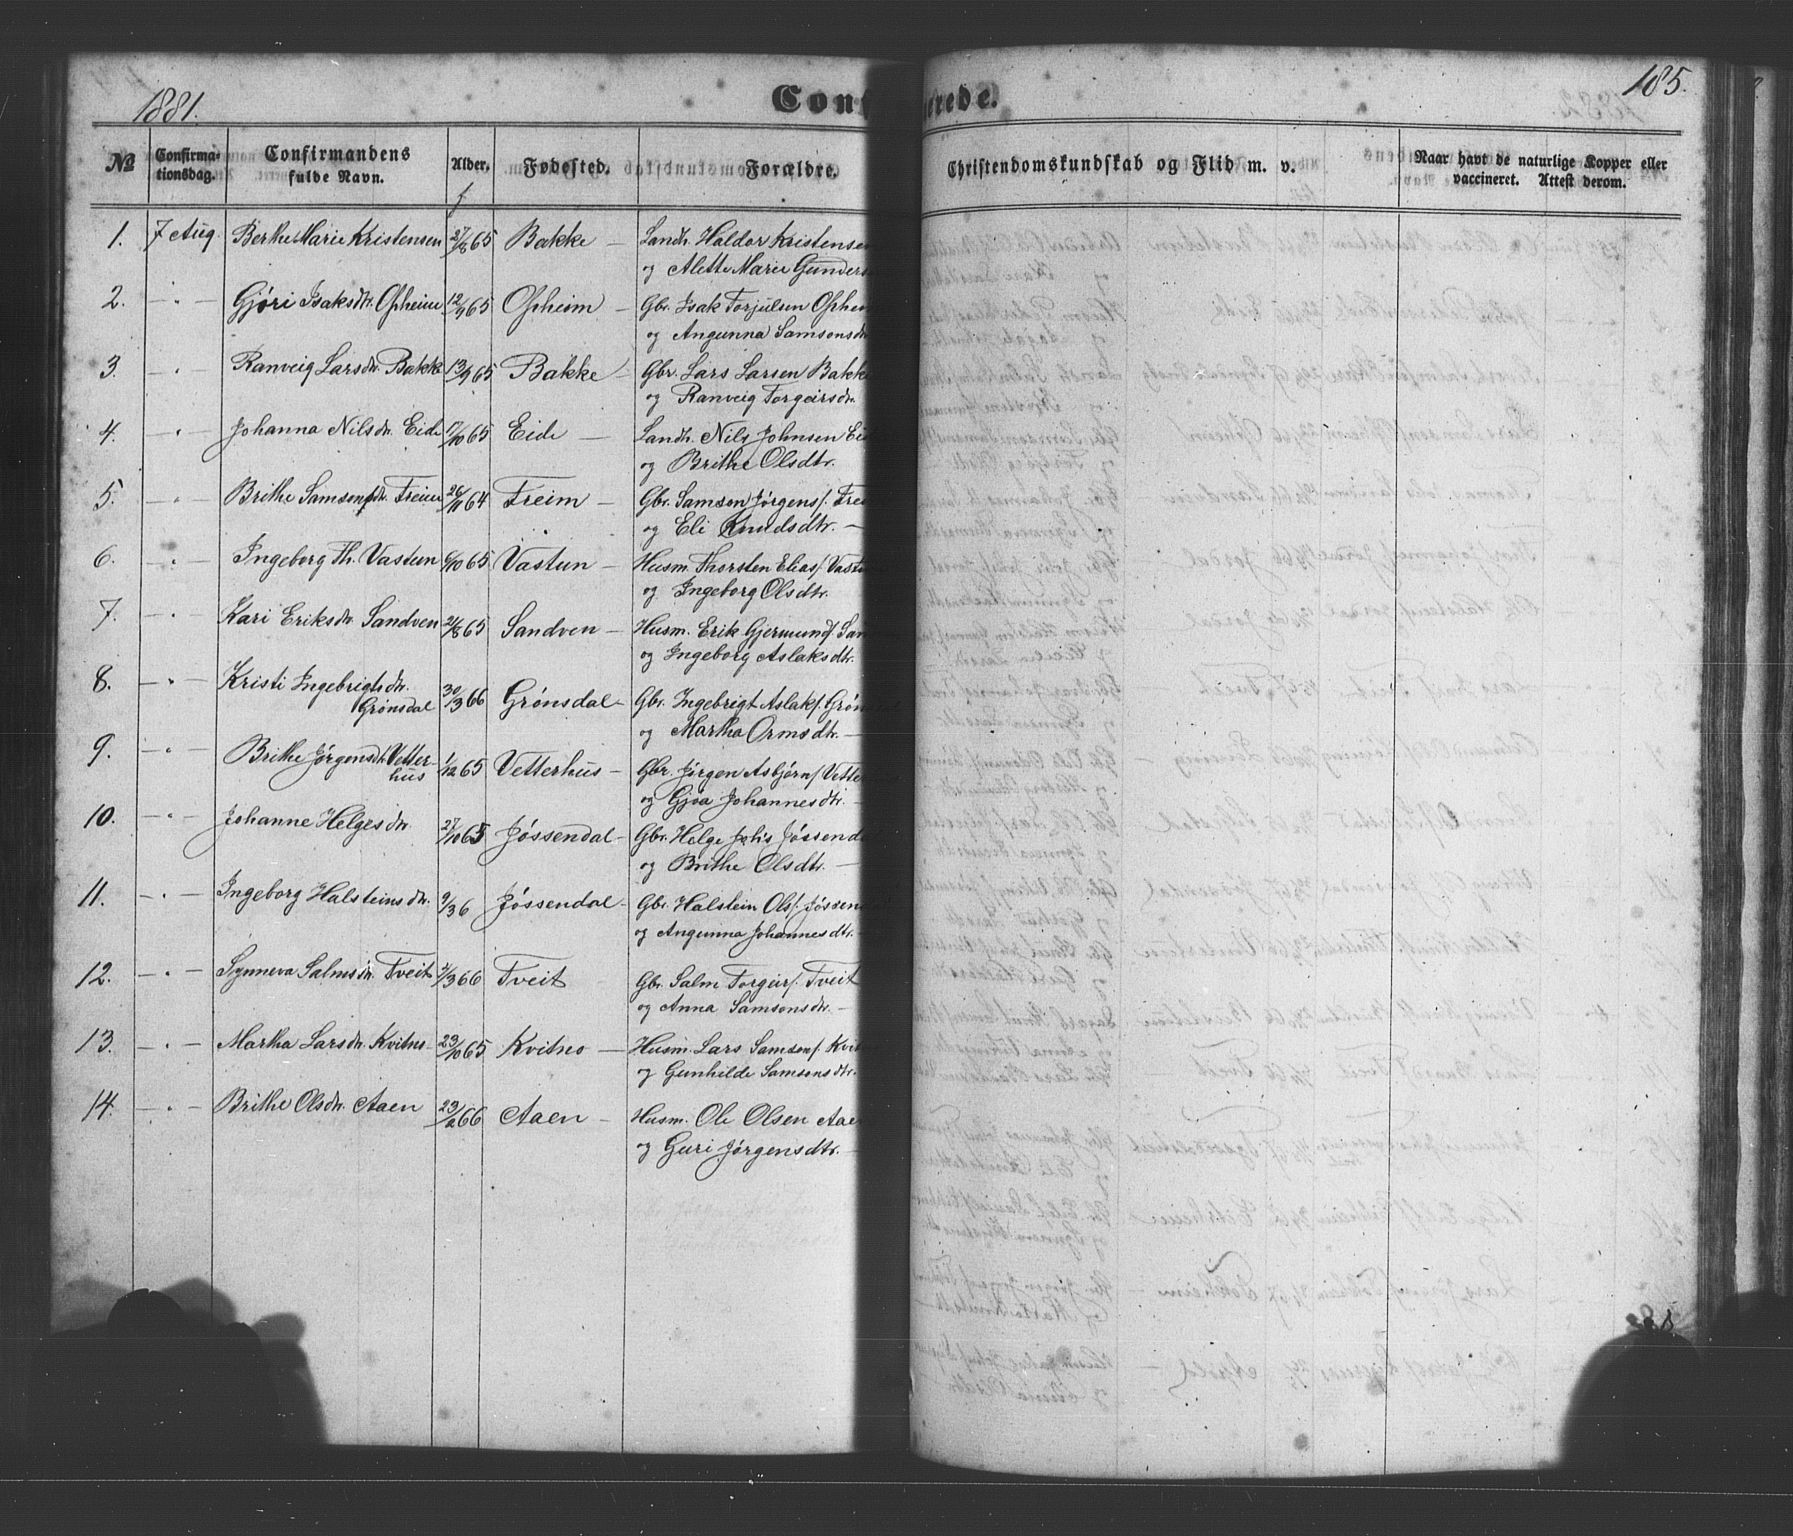 1881.
Conf
irerede.
185.
No
Confirma-
tionsdag.
Confirmandens
fulde Navn.
Alder.
Fødested.
Forældre.
Christendomskundskab og Flid m. v.
Naar havt de naturlige Kopper eller
vaccineret. Attest derom.
1. 7 Aug. Berthe Marie Kristensen 27/8 65 Bakke — Landh. Haldor Kristensen
og Alette Marie Gunders
2. — " — Gjøri Isaksdtr. Opheim 12/9 65 Opheim Gbr. Isak Torjulsen Ophei
og Angunna Samsonsdtr
3. — " — Ranveig Larsdtr. Bakke 13/9 65 Bakke — Gbr. Lars Larsen Bakke
og Ranveig Torgeirsdtr.
4. — " — Johanna Nilsdtr. Eide 17/10 65 Eide — Landh. Nils Johnsen Ei
og Brithe Olsdtr.
5. — " — Brithe Samsonsdtr. Freim 26/11 64 Freim — Gbr. Samson Jørgens/. Frei
og Eli Knudsdtr. —
6. — " — Ingeborg Th. Vastun 6/10 65 Vastun — Husm. Thorsten Elias/. Vastu
og Ingeborg Olsdtr.
7. — " — Kari Eriksdtr. Sandven 21/8 65 Sandven — Husm. Erik Gjermund/. San
og Ingeborg Aslaksdtr.
8. — " — Kristi Ingebrigtsdtr.
Grønsdal 30/3 66 Grønsdal — Gbr. Ingebrigt Aslak/. Grøn
og Martha Ormsdtr. —
9. — " — Brithe Jørgensdtr. Vetter-
hus 1/12 65 Vetterhus — Gbr. Jørgen Asbjørn/. Vette
og Gjøa Johannesdtr. —
10. — " — Johanne Helgesdtr. 27/10 65 Jøssendal — Gbr. Helge Johs Jøssend
og Brithe Olsdtr. —
11. — " — Ingeborg Halsteinsdtr. 9/3 6 Jøssendal — Gbr. Halstein Ols/. Jøssen
og Angunna Johannesdtr. —
12. — " — Synneva Salmsdtr. Tveit /3 66 Tveit Gbr. Salm Torgeir/. Tveit
og Anna Samsonsdtr. —
13. — " — Martha Larsdtr. Kvitno 23/10 65 Kvitno — Husm. Lars Samson/. Kvit
og Gunhilde Samsonsdtr.
14. — " — Brithe Olsdtr. Aaen 23/2 66 Aaen — Husm. Ole Olsen Aae
og Guri Jørgensdtr. —